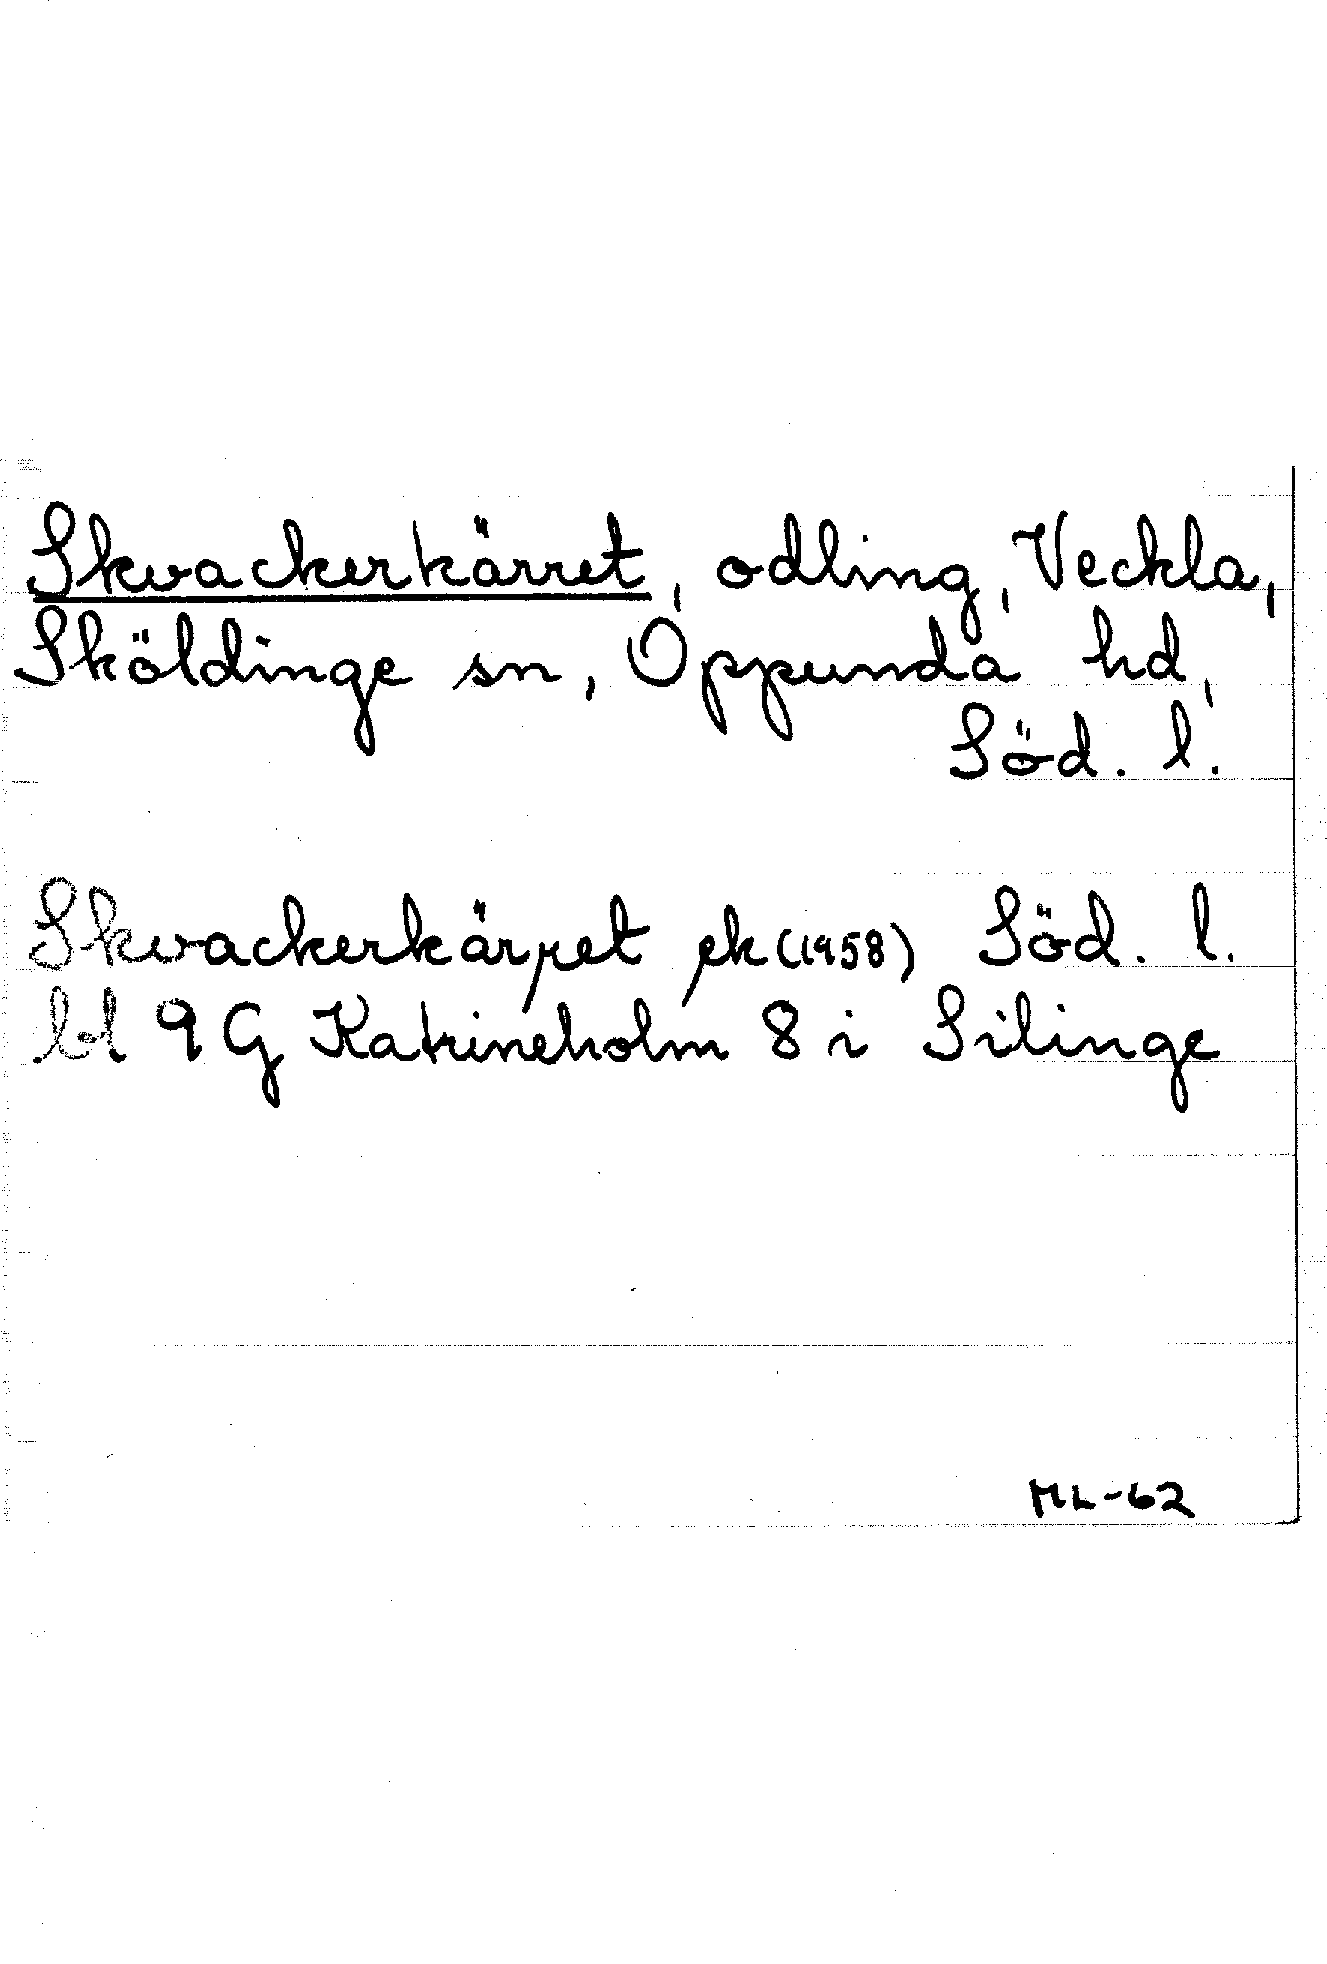 Skvackerkärret, odling, Veckla,
Sköldinge sn, Oppunda hd,
Söd. l.
Skvackerkärret ek (1958) Söd. l.
bl 9G Katrineholm 8 i Silinge
ML-62